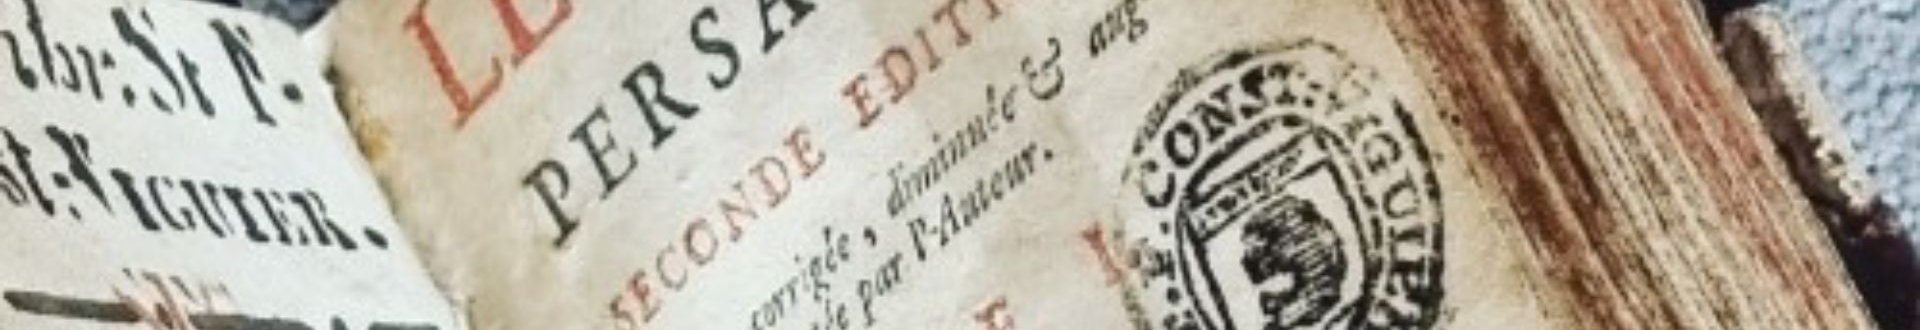 St F.
VIGUIER.
LE
PERSA
SECONDE EDITI
corrigée, diminuée & aug
par l'Auteur.
CONST: VIGUIER